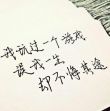 我玩过一个游戏
误我一生
却不悔其途